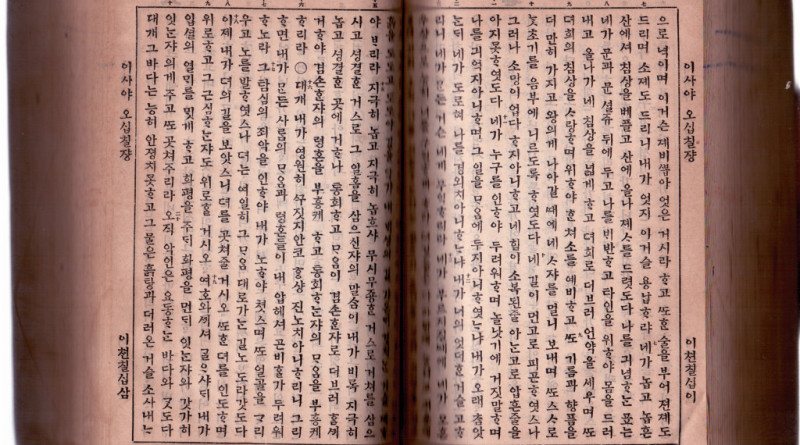 이사야 오십칠쟝
이쳔칠십이
으로 녁이며 이거슨 제비뽑아 엇은 거시라 ᄒᆞ고 ᄯᅩᄒᆞᆫ 술을 부어 젼제도
드리며 소제도 드리니 내가 엇지 이거슬 용납ᄒᆞ랴 네가 놉고 놉흔
산에셔 침상을 베플고 산에 올나 제ᄉᆞ를 드렷도다 나를 긔념ᄒᆞᄂᆞᆫ 표는
네가 문과 문셜쥬 뒤에 두고 나를 비반ᄒᆞ고 타인을 위ᄒᆞ야 몸을 드러
내고 올나가 네 침상을 넓게 ᄒᆞ고 뎌희로 더브러 언약을 세우며 ᄯᅩ
뎌희의 침상을 ᄉᆞ랑ᄒᆞ며 위ᄒᆞ야 ᄒᆞᆫ 쳐소를 예비ᄒᆞ고 ᄯᅩ 기름과 향픔을
더 만히 가지고 왕의게 나아갈 때에 네 ᄉᆞ쟈를 멀니 보내며 ᄯᅩ 스스로
ᄂᆞᆺ초기를 음부에 니르도록 ᄒᆞ엿도다 네 길이 먼고로 피곤ᄒᆞ엿스나
그러나 소망이 업다 ᄒᆞ지아니ᄒᆞ고 네 힘이 소복된줄 아ᄂᆞᆫ고로 압흔줄을
아지못ᄒᆞ엿도다 네가 누구를 인ᄒᆞ야 두려워ᄒᆞ며 놀낫기에 거짓말ᄒᆞ며
나를 긔억지아니ᄒᆞ며 그 일을 ᄆᆞ음에 두지아니ᄒᆞ엿ᄂᆞ냐 내가 오래 ᄎᆞᆷ앗
ᄂᆞᆫ듸 네가 도로혀 나를 경외치아니ᄒᆞᄂᆞ냐 내가 너의 엇더ᄒᆞᆫ 거슬
이사야 오십칠쟝
이쳔칠십삼
야 브리라 지극히 놉고 지극히 놉흐샤 무시무죵ᄒᆞᆫ 거스로 거쳐를 삼으
시고 셩결ᄒᆞᆫ 거스로 그 일홈을 삼으신쟈의 말ᄉᆞᆷ이 내가 비록 지극히
놉고 셩결ᄒᆞᆫ 곳에 거ᄒᆞ나 통회ᄒᆞ고 ᄆᆞ음이 겸손ᄒᆞᆫ쟈로 더브러 ᄒᆞᆷᄭᅴ
거ᄒᆞ야 겸손ᄒᆞᆫ쟈의 령혼을 부흥케 ᄒᆞ고 통회ᄒᆞᄂᆞᆫ쟈의 ᄆᆞ음을 부흥케
ᄒᆞ리라 ◯ 대개 내가 영원히 ᄭᅮ짓지안코 ᄒᆞᆼ샹 진노치아니ᄒᆞ리니 그리
ᄒᆞ면 내가 만든 사ᄅᆞᆷ의 ᄆᆞ음과 령혼들이 내 압헤셔 곤비ᄒᆞᆯ가 두려워
ᄒᆞ노라 그 탐심의 죄악을 인ᄒᆞ야 내가 노ᄒᆞ야 쳣스며 ᄯᅩ 얼골을 ᄀᆞ리
우고 노를 발ᄒᆞ엿스나 뎌는 여일히 그 ᄆᆞ음대로 가ᄂᆞᆫ 길노 도라갓도다
이제 내가 뎌의 길을 보앗스니 뎌를 곳쳐줄 거시오 ᄯᅩᄒᆞᆫ 뎌를 인도ᄒᆞ며
위로ᄒᆞ고 그 근심ᄒᆞᄂᆞᆫ쟈도 위로ᄒᆞᆯ 거시오 여호와ᄭᅴ셔 ᄀᆞᆯᄋᆞ샤듸 내가
입셜의 열ᄆᆡ를 잇게 ᄒᆞ고 화평을 주되 화평을 먼듸 잇ᄂᆞᆫ쟈와 갓가히
잇ᄂᆞᆫ쟈의게 주고 ᄯᅩ 곳쳐주리라 오직 악인은 요동ᄒᆞᄂᆞᆫ 바다와 ᄀᆞᆺ도다
대개 그 바다는 능히 안졍치못ᄒᆞ고 그 물은 흙탕과 더러온 거슬 소사내ᄂᆞ